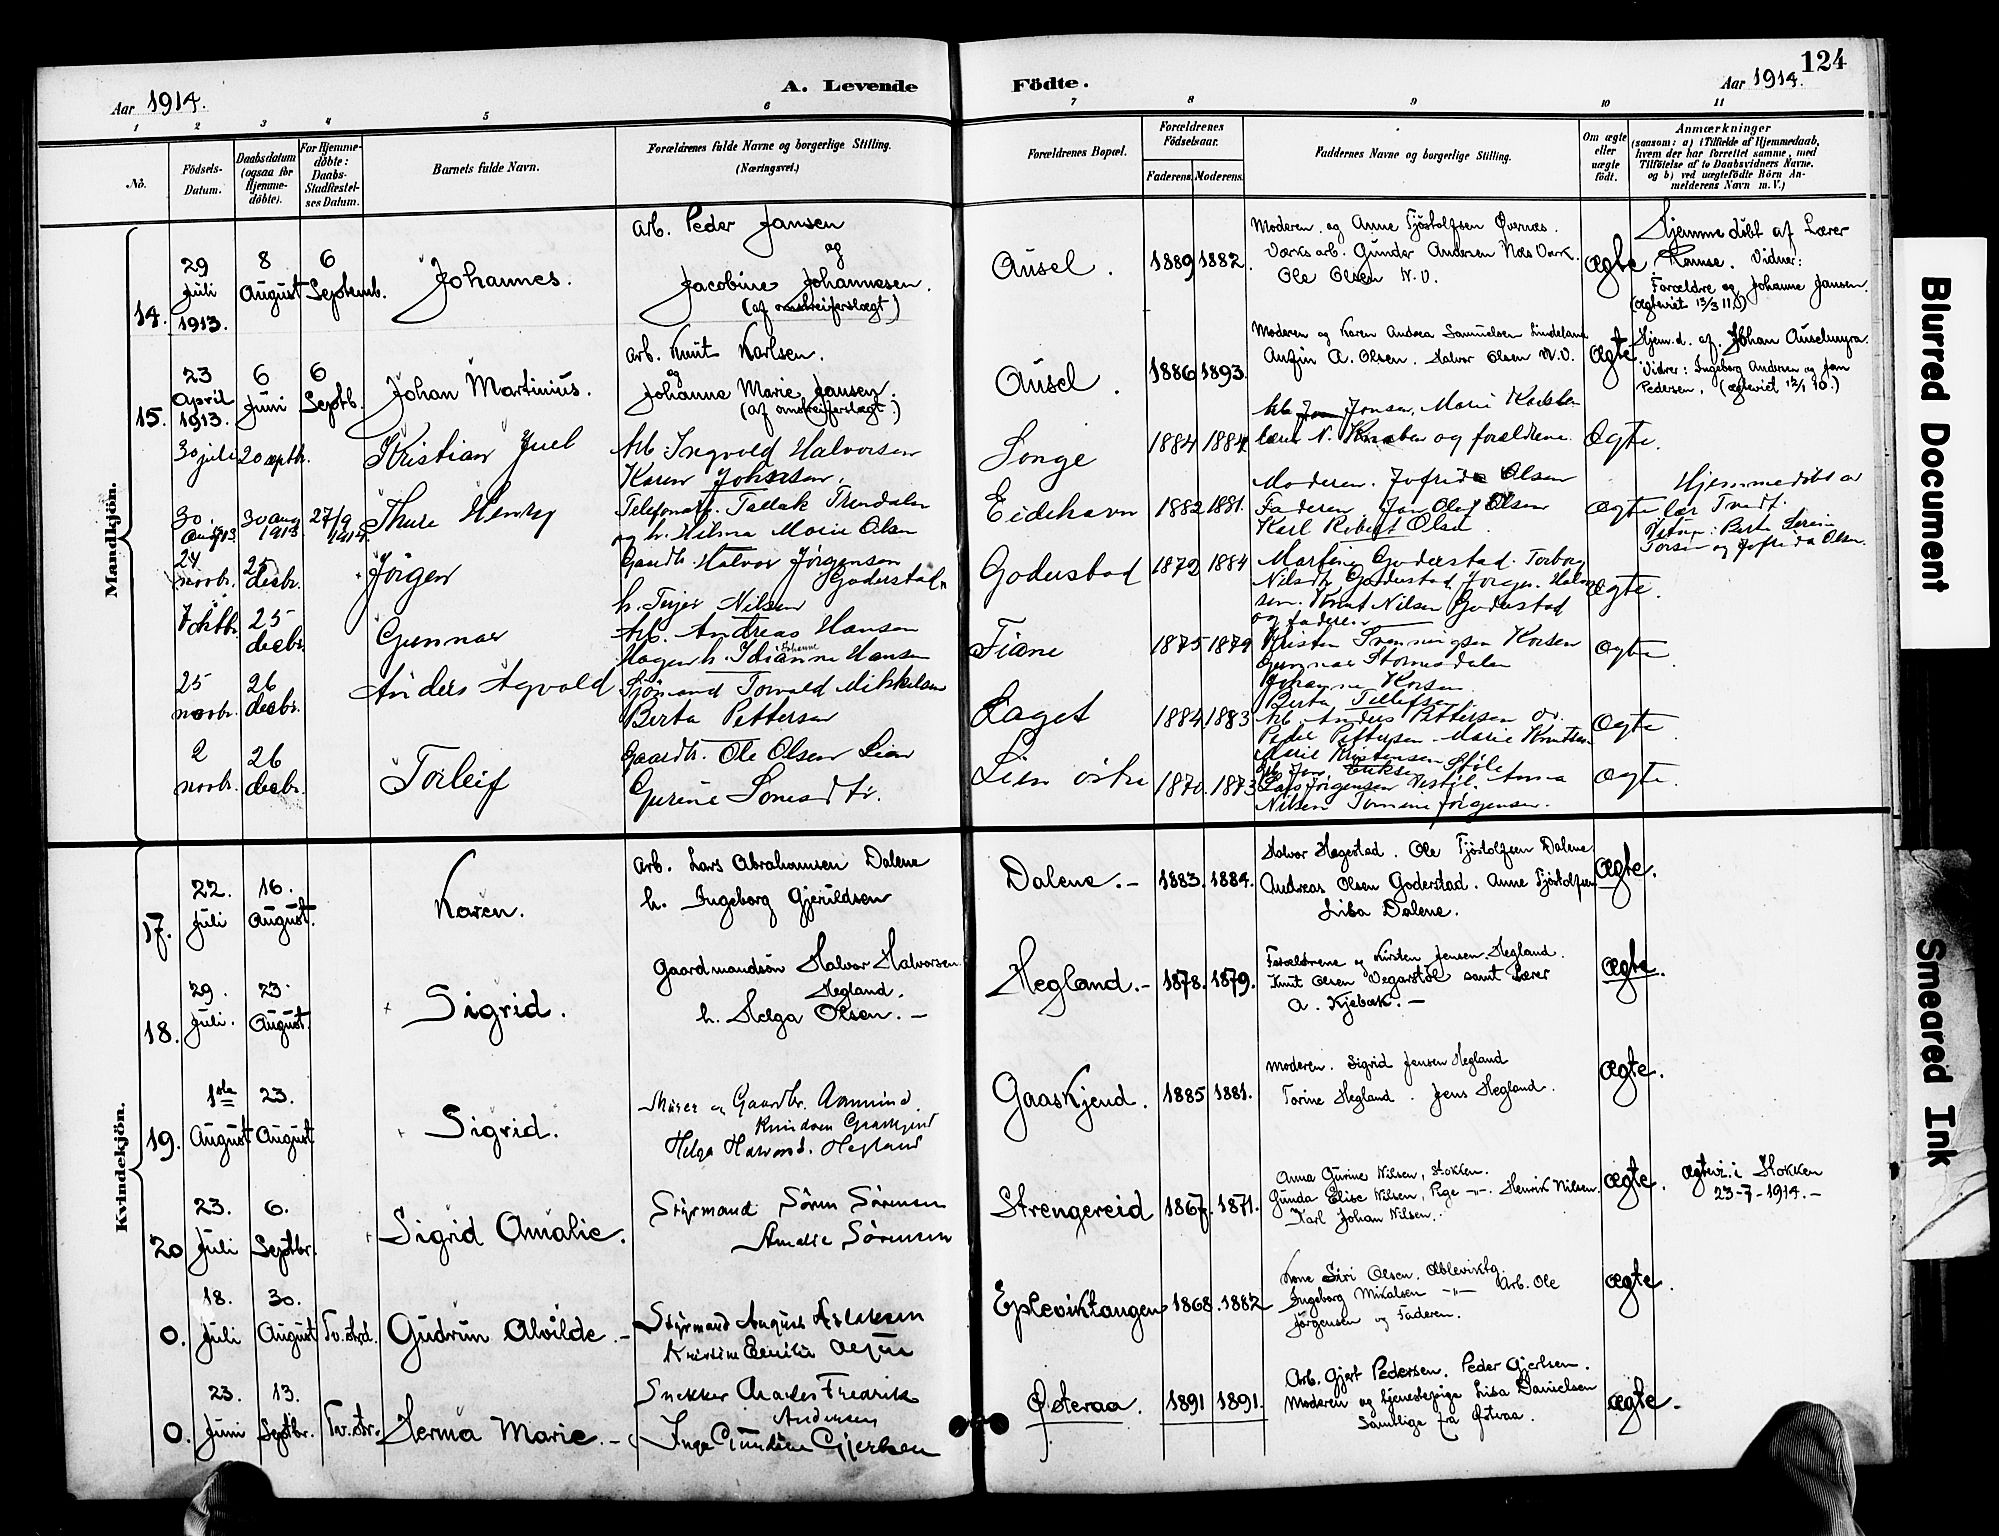 124
Aar 1914.
A. Levende Födte.
Aar 1914.
1 2 3 4 5 6 7 8 9 10 11
No.
Födsels-Datum.
Daabsdatum (ogsaa for Hjemme-döbte).
For Hjemme-döbte: Daabs-Stadfæstel-ses Datum.
Barnets fulde Navn.
Forældrenes fulde Navne og borgerlige Stilling.
(Næringsvei.)
Forældrenes Bopæl.
Forældrenes Födselsaar.
Faderens. Moderens.
Faddernes Navne og borgerlige Stilling.
Om ægte eller uægte födt.
Anmærkninger
(saasom: a) i Tilfælde af Hjemmedaab,
hvem der har forrettet samme, med
Tilföielse af to Daabsvidners Navne.
og b) ved uægtefödte Börn An-
melderens Navn m. V.)
Mandkjön.
14.
29 Juli 1913.
8 August
6 Septemb.
Johannes.
Arb. Peder Jansen
og
Jacobine Johannesen.
(af omstreiferslægt)
Ausel.
1889 1882.
Moderen og Anne Tjöstolfsen Övernæs.
Værks arb. Gunder Andersen Næs Værk.
Ole Olsen N.V.
ægte
Hjemmedöbt af Lærer
Ramse. Vidner:
Forældre og Johanne Jansen.
(ægteviet 13/3 11.)
15.
23 April 1913.
6 Juni
6 Septb.
Johan Martinius.
Arb. Knut Karlsen.
og
Johanne Marie Jansen.
(af omstreiferslægt.)
Ausel.
1886 1893.
Moderen og Karen Andrea Samuelsen Lindeland
Anzin A. Olsen. Halvor Olsen N.V.
ægte
Hjem.d. af Johan Auselmyra.
Vidner: Ingeborg Andersen og Jan
Pedersen, (ægteviet 12/1 10.)
30 juli
20 septb.
Kristian Juel
Arb. Ingvald Halvorsen
Karen Johnsen.
Songe
1884 1884
Arb. Jonsen, Marie Karlsen
lærer N. Knaben og forældrene.
ægte.
30. aug 1913
30 aug 1913
27/9 1914
Thure Henry
Telefonarb. Tallak Trondalen
og h. Hilma Marie Olsen
Eidehavn
1882 1881.
Moderen. Jofride Olsen
Faderen Jan Olaf Olsen
Karl Robert Olsen
ægte
Hjemmedöbt av
lær Tvedt.
Vitner: Berte Serin
Torsen og Jofrida Olsen.
24 novbr.
25 decbr.
Jörgen
Gaardbr. Halvor Jörgensen
Goderstad
h. Terjer Nilsen
Goderstad
1872 1884
Martine Goderstad. Torborg
Nilsdtr Goderstad Jörgen Halvor
sen. Knut Nilsen Goderstad
og faderen
ægte.
7 oktbr.
25 decbr.
Gunnar
Arb. Andreas Hansen
Hagen h. Idianne Hansen
Johanne
Fiane
1875 1879
Kristen Svenningsen Korsen
Gunnar Stomdalen
Johanne Korsen
Berta Tellefsen
ægte
25 novbr.
26 decbr.
Anders Agvald
Sjömand Torvald Mikkelsen
Berta Pettersen
Laget
1884 1883
Arb. Anders Pettersen ov.
Peder Pettersen. Marie Knutsen
Marie Kristensen Støle
ægte
2 novbr.
26 decbr.
Torleif
Gaardbr. Ole Olsen Lien
Gurine Lonsdtr.
Lien östre
1870. 1873
Arb. Jens Eriksen
Lars Jörgensen Vestöl. Anna
Nilsen Tomine Jörgensen.
ægte
Kvindekjön.
17.
22. Juli
16. August.
Karen.
Arb. Lars Abrahamsen Dalene
h. Ingeborg Gjeruldsen
Dalene.-
1883. 1884.
Halvor Hagestad. Ole Tjöstolfsen Dalene
Andreas Olsen Goderstad. Anne Tjöstolfsen
Lisa Dalene.
ægte.
18.
29. Juli.
23. August.
Sigrid.
Gaardmandsön Halvor Halvorsen
Hegland.
h. Helga Olsen.-
Hegland.-
1878. 1879.
Forældrene og Kirsten Jensen Hegland.
Knut Olsen Vegarstöl samt Lærer
A. Kjebæk.-
ægte.
19.
1ste August
23. August
Sigrid.
Murer og Gaardbr. Aanund
Knudsen Gaaskjend
Helga Halvorsd. Hegland
Gaaskjend.
1885 1881.
Moderen. Sigrid Jensen Hegland
Torine Hegland. Jens Hegland.
ægte.
20
23. Juli
6. Septbr.
Sigrid Amalie.
Styrmand Sören Sörensen
Amalie Sörensen
Strengereid
1867. 1871.
Anna Gurine Nilsen, Stokken.
Gunda Elise Nilsen, Pige -"-. Henrik Nilsen.
Karl Johan Nilsen.
ægte.
ægtevi. i Stokken
23-7-1914.-
0.
18. Juli
30. August
Tv.strd.
Gudrun Alvilde.-
Styrmand August Aslaksen
Kristine Emilie
Epleviktangen
1868. 1882
Kone Siri Olsen. Ableviktg.
Ingeborg Mikalsen -"- Arb. Ole
Jörgensen og Faderen.
ægte.
0.
23. Juni
13. Septbr.
Tv.str.
Herma Marie.-
Snekker Charles Fredrik
Andersen
Inga Gundine Gjertsen
Østeraa.
1891 1891.
Arb. Gjert Pedersen. Peder Gjertsen.
Moderen og tjenestepige Lisa Danielsen
Samtlige fra Østeraa.
ægte.-
Blurred Document
Smeared Ink